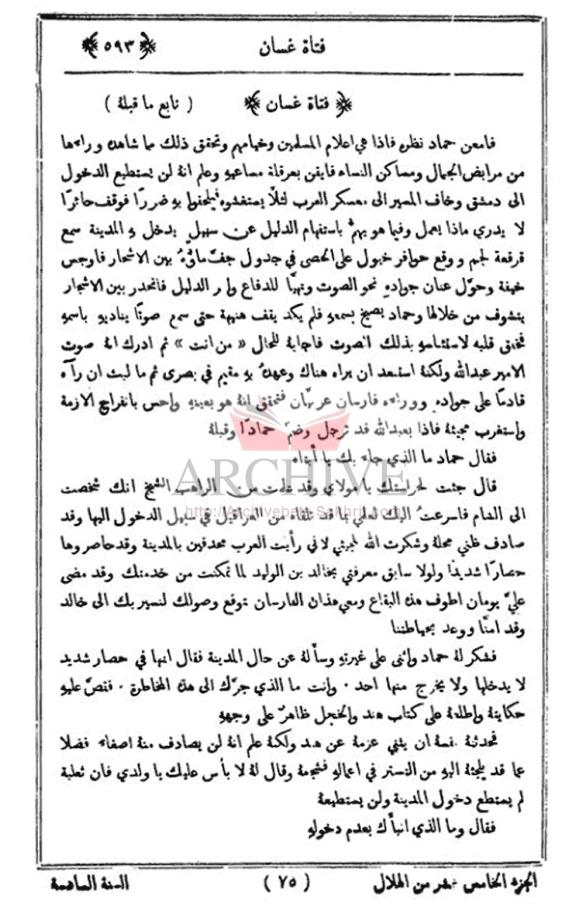 فتاة غسان
﴿ ٥٩٣ ﴾
﴿ فتاة غسان ﴾ ( تابع ما قبلة )
فامعن حماد نظره فاذا هي اعلام المسلمين وخيامهم وتحقق ذلك مما شاهده وراءها
من مرابض الجمال ومساكن النساء فايقن بعرقلة مساعيهِ وعلم انهُ لن يستطيع الدخول
الى دمشق وخاف المسير الى معسكر العرب لئلا يستغشوه فيلحقوا بهِ ضررًا فوقف حائرًا
لا يدري ماذا يعمل وفيما هو يهمُّ باستفهام الدليل عن سبيل يدخل بهِ المدينة سمع
قرقعة لجم ووقع حوافر خيول على الحصى في جدول جفَّ ماؤُهُ بين الاشجار فاوجس
خيفة وحوَّل عنان جوادهِ نحو الصوت وتهيَّأ للدفاع وامر الدليل فانحدر بين الاشجار
يتشوف من خلالها وحماد يصيخ بسمعهِ فلم يكد يقف هنيهة حتى سمع صوتًا يناديهِ باسمهِ
فخفق قلبه لاستئناسهِ بذلك الصوت فاجابهُ للحال « من انت » ثم ادرك انهُ صوت
الامير عبدالله ولكنهُ استبعد ان يراه هناك وعهدهُ بهِ مقيم في بصرى ثم ما لبث ان رآهُ
قادمًا على جوادهِ ووراءهُ فارسان عربيَّان فتحقق انهُ هو بعينهِ واحس بانفراج الازمة
واستغرب مجيئهُ فاذا بعبدالله قد ترجل وضمَّ حمادًا وقبلهُ
فقال حماد ما الذي جاء بك يا أبتاه
ARCHIVE
قال جئت لحراستك يا مولاي وقد علمت من الراهب الشيخ انك شخصت
http://Archivebeta.Sakhrit.com
الى الشام فاسرعتُ اليك لعلمي بما قد تلقاه من العراقيل في سبيل الدخول اليها وقد
صادف ظني محلهُ وشكرت الله لمجيئي لاني رأيت العرب محدقين بالمدينة وقد حاصروها
حصارًا شديدًا ولولا سابق معرفتي بخالد بن الوليد لما تمكنت من خدمتك وقد مضى
عليَّ يومان اطوف هذه البقاع ومعي هذان الفارسان نتوقع وصولك لنسير بك الى خالد
وقد امنَّا ووعد بحياطتنا
فشكر لهُ حماد واثنى على غيرتهِ وسأَلهُ عن حال المدينة فقال انها في حصار شديد
لا يدخلها ولا يخرج منها احد ٠ وانت ما الذي جرَّك الى هذه المخاطرة ٠ فقصَّ عليهِ
حكايتهُ واطلعهُ على كتاب هند والخجل ظاهرٌ على وجههِ
فحدثتهُ نفسهُ ان يثني عزمهُ عن هند ولكنهُ علم انهُ لن يصادف منهُ اصغاء فضلا
عما قد يلجئهُ اليهِ من التستر في اعمالهِ فشجعهُ وقال لهُ لا بأس عليك يا ولدي فان ثعلبة
لم يستطع دخول المدينة ولن يستطيعهُ
فقال وما الذي انبأَك بعدم دخولهِ
الجزء الخامس عشر من الهلال
( ٧٥ )
السنة السادسة